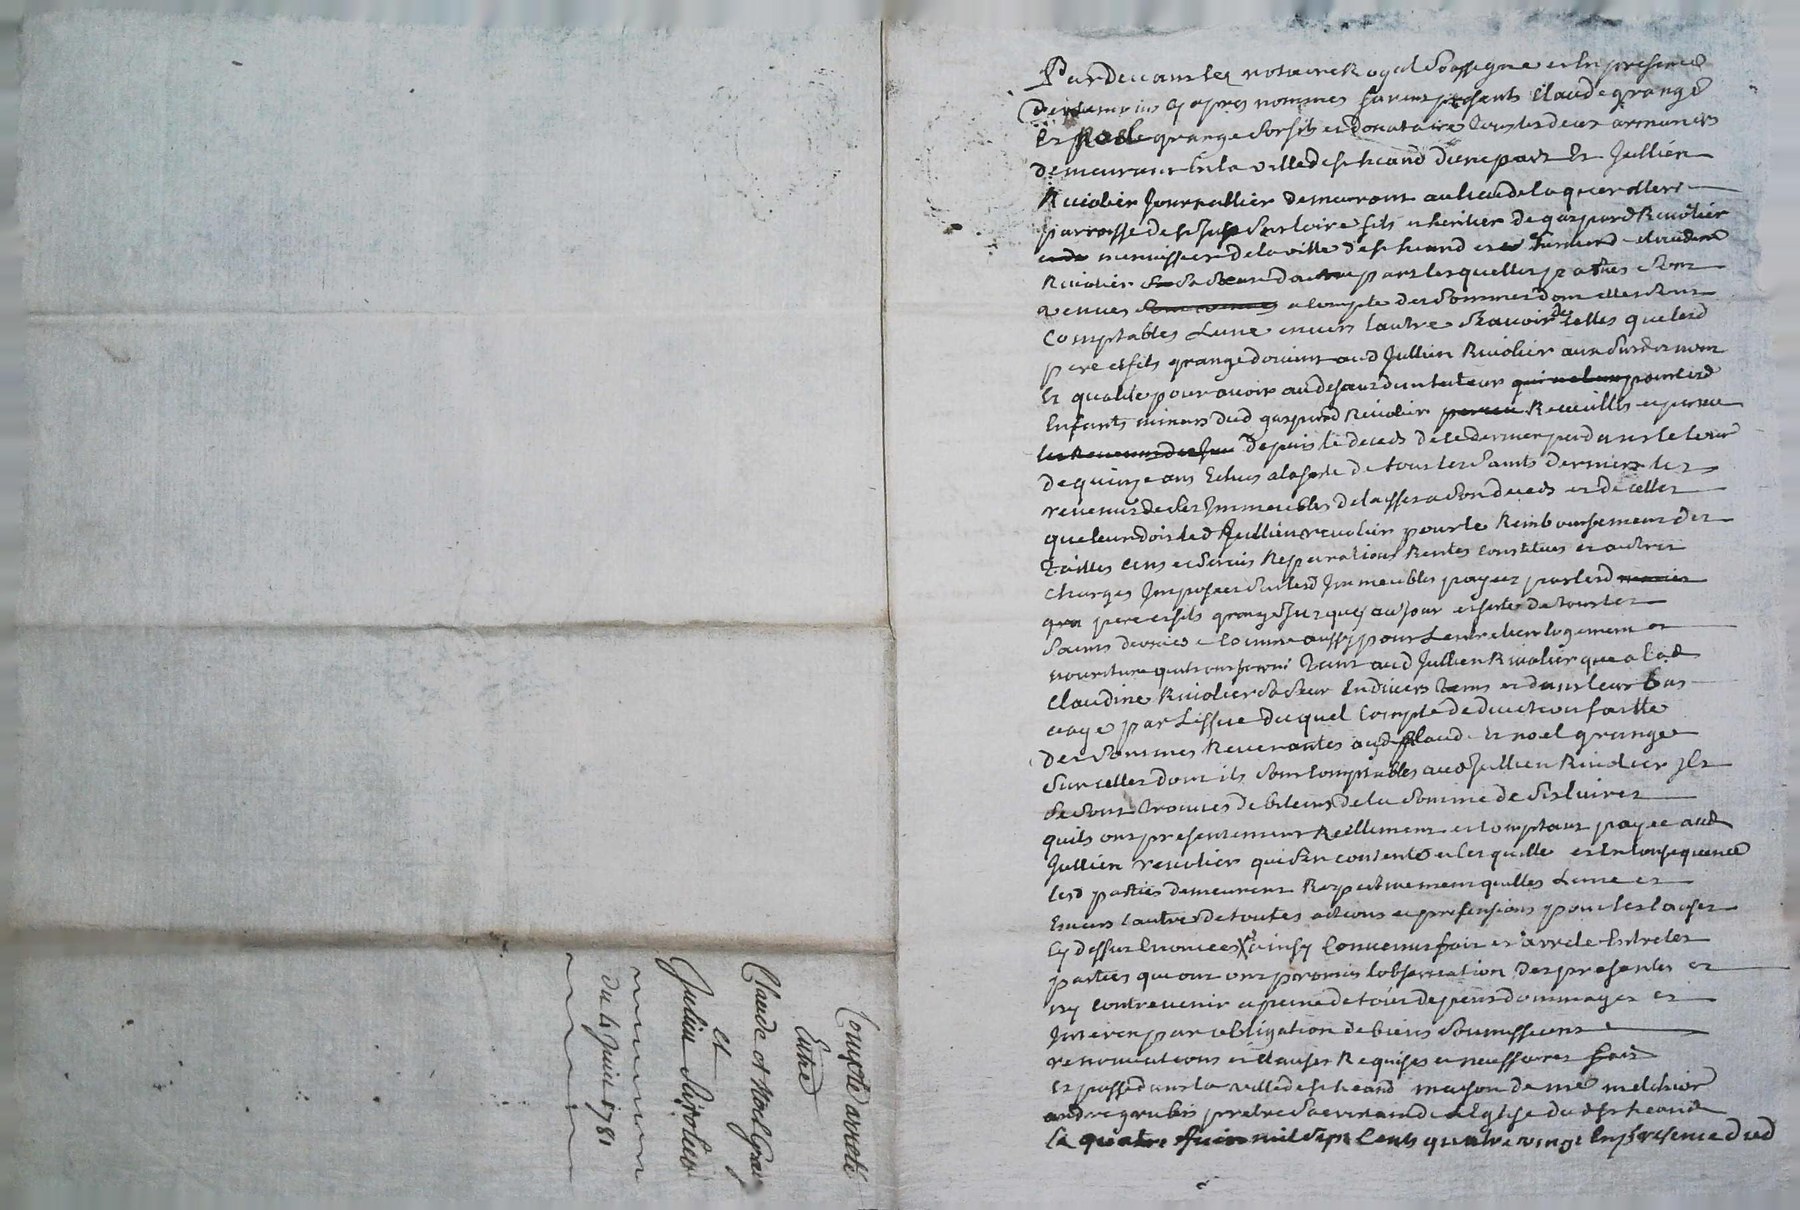 Pardevant le notaire Royal Soussigne et En presence
des temoins cy apres nommes furent presents Claude grange
Et Noel grange son fils et donataire tous les deux
demeurant En la ville de st heand dune part Et Jullien
Rivolier Journallier demeurant au lieu de la
parroisse de st Just Sur loire fils et heritier de gaspard Rivolier
menuissier de la ville de st heand et Claudine
Rivolier Sa Soeur dautre part lesquelles parties Sont
venues a compte des Sommes dont elles Sont
Comptables Lune envers lautre Scavoir de celles que lesd
pere et fils grange doivent aud Jullien Rivolier aux Susd nom
Et qualite pour avoir au defaut dun tuteur
Enfants mineurs dud gaspard Rivolier Recueilli et percu
depuis le deceds de ce dernier pendant le cour
de quinze ans Echus a la feste de tous les Saints dernier les
revenus de Ses Immeubles delaissés a Son deceds et de celles
que leur doit led Jullien rivolier pour le Remboursement des
tailles cens et Servis Reparations Rentes constitues et autres
charges Imposees Sur lesd Immeubles payees par lesd
gra pere et fils grange Jusquej au jour et feste de tous les
Saints dernier comme aussy pour Lentretien logement et
nouriture quils ont fourni tant aud Jullien Rivolier que a lad
Claudine Rivolier Sa Soeur En divers tems et dans leur bas
aage par Lissue duquel Compte deduction faitte
des Sommes Revenantes aud Claud Et noel grange
Sur celles dont ils Sont Comptables aud Jullien Rivolier Ils
Se Sont trouves debiteurs de la Somme de Six livres
quils ont presentement Reellement et comptant payee aud
Jullien rivolier qui Sen contente et les quitte et En Consequence
lesd parties demeurent Respectivement quittes Lune et
Envers lautre de toutes actions et pretensions pour les causes
Cy dessus Enoncees ainsy Convenu fait et arrete Entre les
parties qui ont promis lobservation des presentes et
ny contrevenir a peine de tous depens dommages et
Interets par obligation de biens Soumissions
renonciations et clauses Requises et necessaires fait
Et passé dans la ville de st heand maison de me melchior
andre pretre de lEglise dud st heand
Le quatre Juin mil Sept Cents quatre vingt En presence dud
Compte arreté
Entre
Claude et Noel Grange
et
Julien Rivolier
du 4 Juin 1781